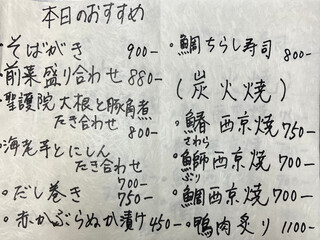 本日のおすすめ
・そばがき 900-
・前菜盛り合わせ 880-
・聖護院大根と豚角煮
たき合わせ
800-
・海老芋とにしん
たき合わせ
700-
・だし巻き 750-
・赤かぶらぬか漬け 450-
・鯛ちらし寿司 800-
(炭火焼)
・鰆西京焼 750-
さわら
・鰤西京焼 700-
ぶり
・鯛西京焼 700-
・鴨肉炙り 1100-